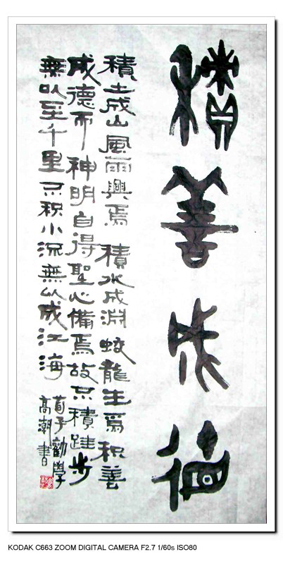 積善成德
積土成山風雨興焉積水成淵蛟龍生焉积善
成德而神明自得聖心備焉故不積跬步
無以至千里不积小流無以成江海
荀子勸學
高潮書
KODAK C663 ZOOM DIGITAL CAMERA F2.7 1/60s ISO80